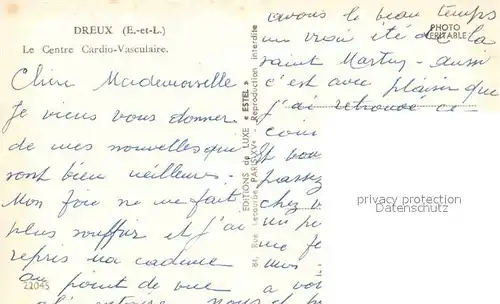 DREUX (E.-et-L.)
Le Centre Cardio-Vasculaire.
Chère Mademoiselle
Je viens vous donner
de mes nouvelles qui
sont bien meilleures -
Mon foie ne me fait
plus souffrir et j'ai
repris ma cadence
22045
au point de vue
EDITIONS de LUXE « ESTEL »
84, Rue Lecourbe, PARIS-XVe - Reproduction interdite
PHOTO
VERITABLE
avons le beau temps
un vrai été de la
saint Martin - aussi
c'est avec plaisir que
j'ai retrouvé ce
passez
chez
me
a
privacy protection
Datenschutz